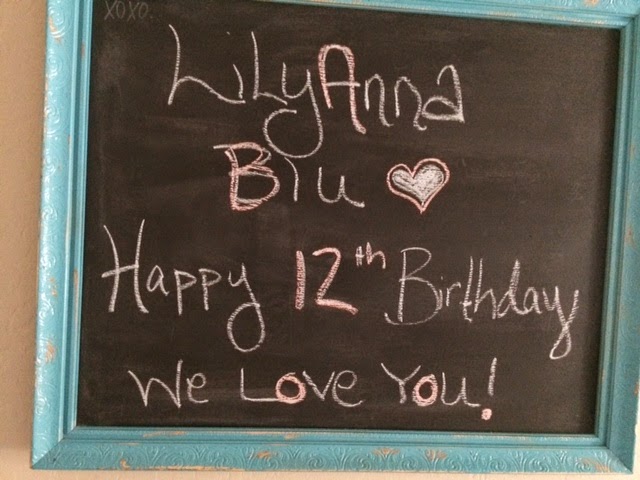 XOXO.
LiLyAnna
Blu
Happy 12th Birthday
We Love You!